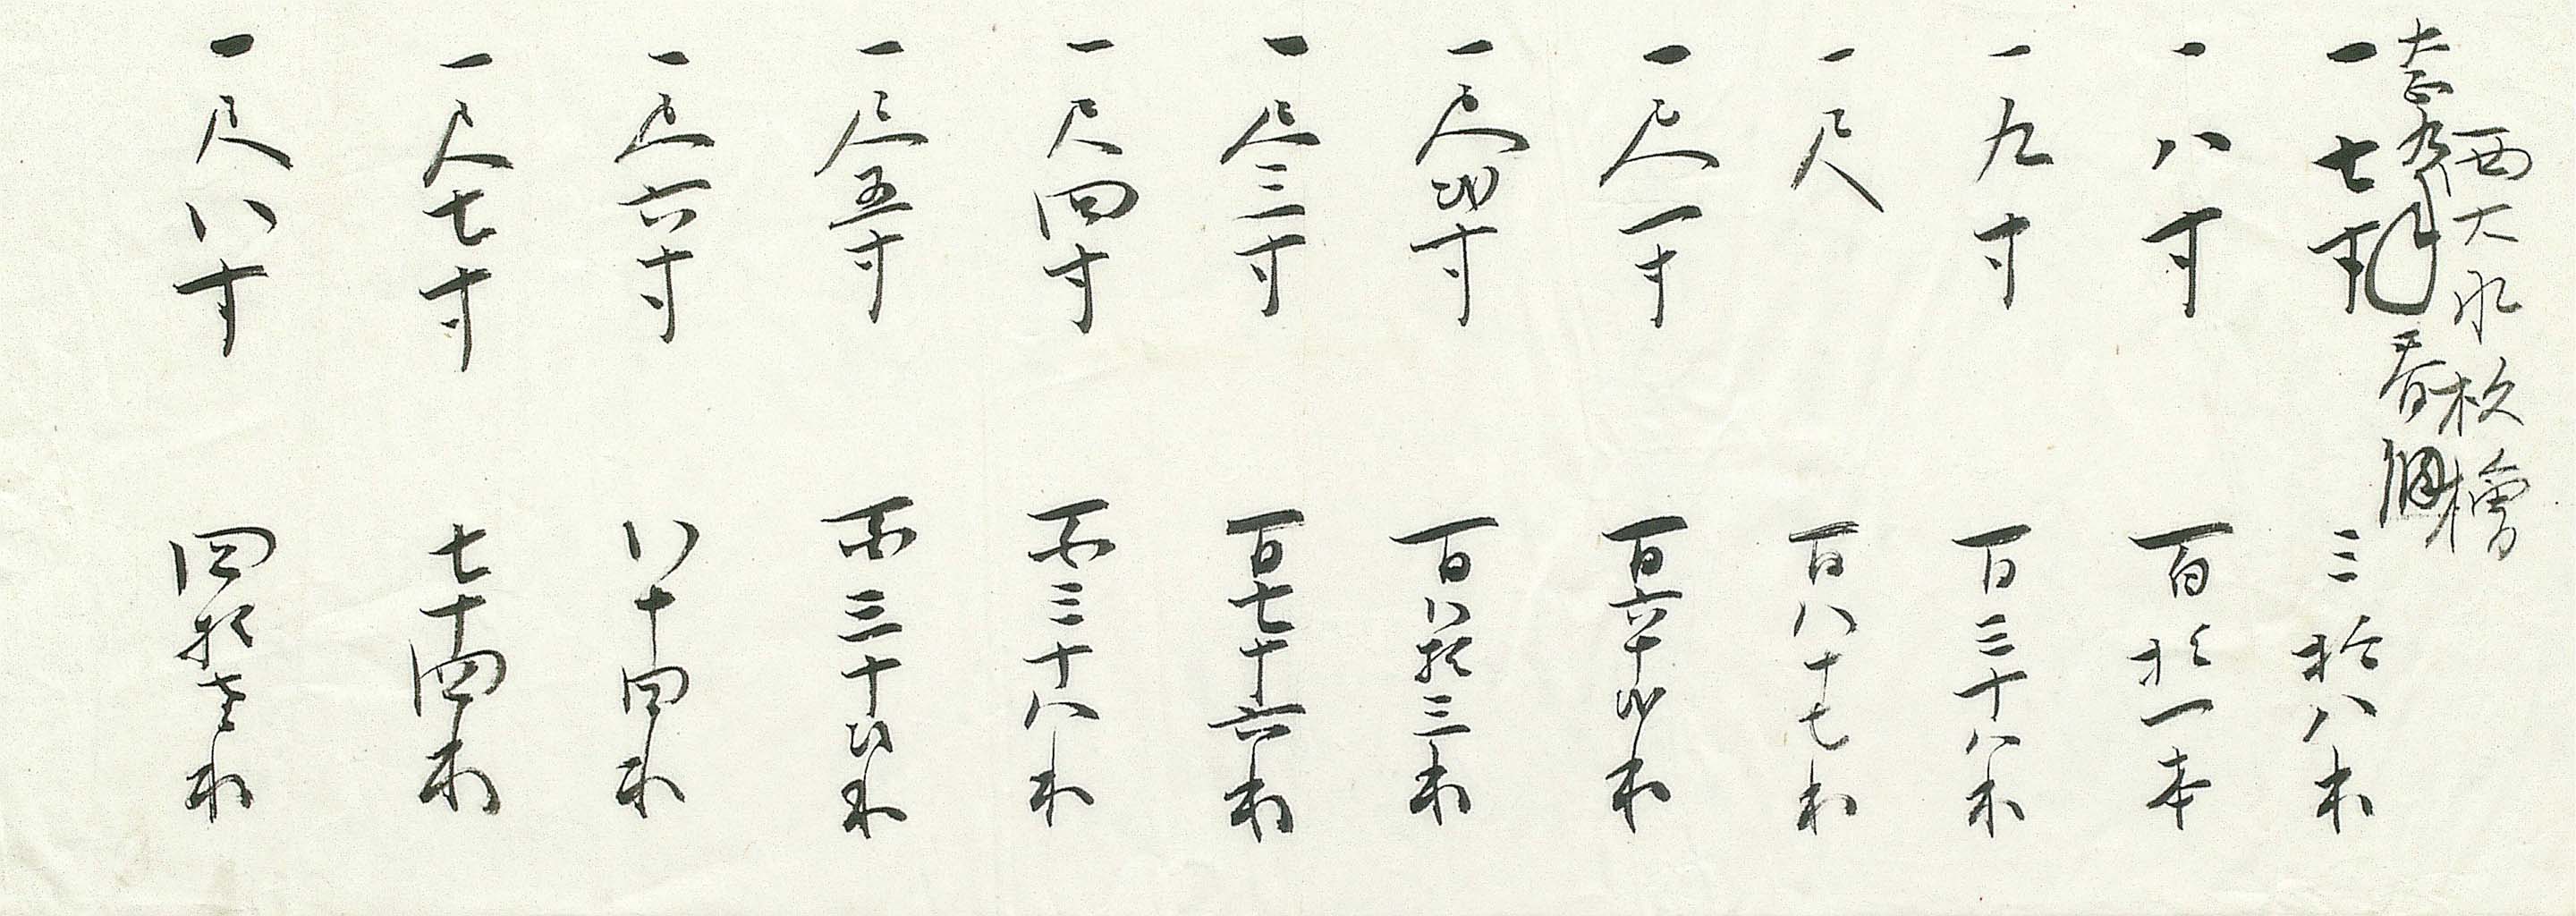 西大水杉檜
大正九年春調
一七寸 三拾八本
一八寸 百拾一本
一九寸 百三十八本
一尺 百八十七本
一尺一寸 百六十弐本
一尺弐寸 百八拾三本
一尺三寸 百七十六本
一尺四寸 百三十八本
一尺五寸 百三十八本
一尺六寸 八十四本
一尺七寸 七十四本
一尺八寸 四拾壱本